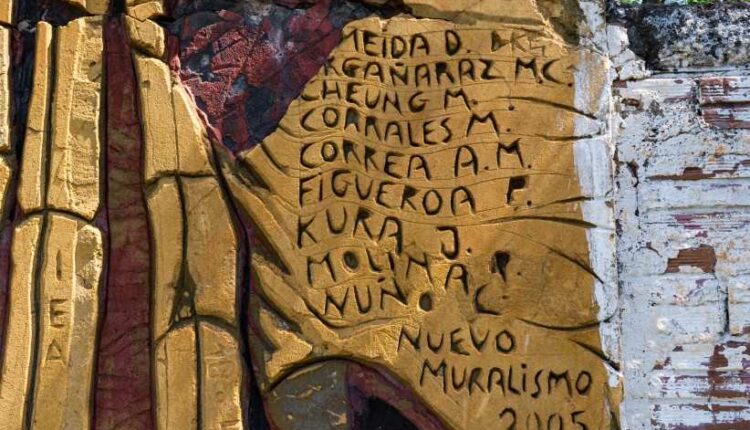 MEIDA D. ARG
RGAÑARAZ MC.
CHEUNG M.
CORRALES M.
CORREA A.M.
FIGUEROA F.
KURA J.
MOLINA P.
NUÑO C
NUEVO
MURALISMO
2005
IEA